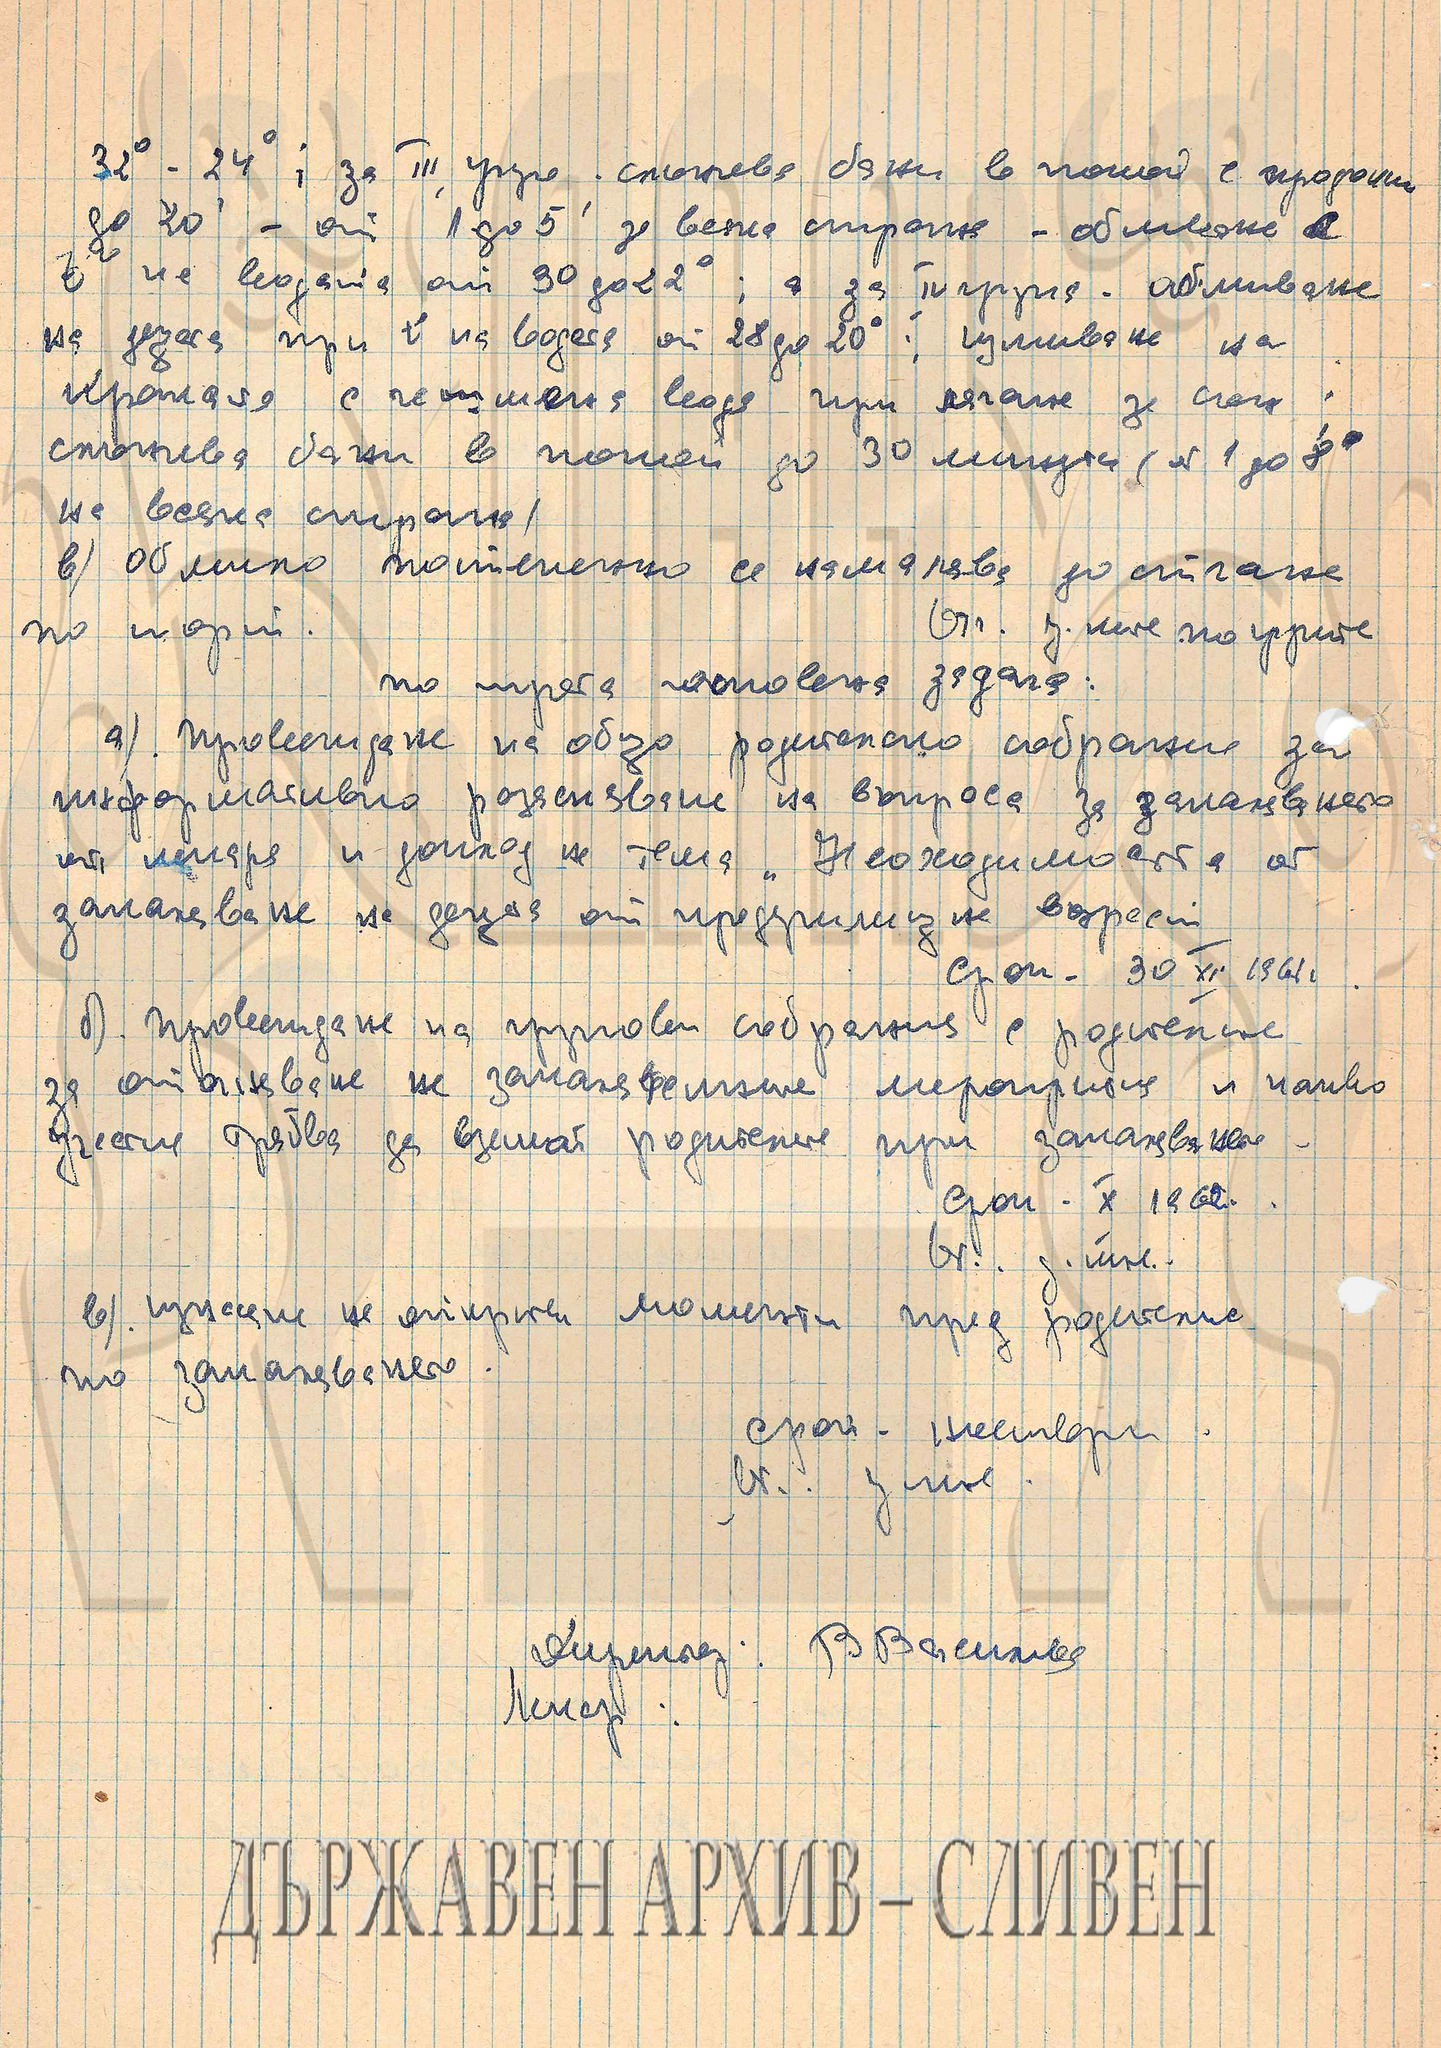 32° - 24° ; за III група - слънчева бани в покой с продълж
до 20' - от 1 до 5' за всяка страна - обливане с
t° на водата от 30 до 22° ; а за IV група - обливане
на децата при t° на водата от 28 до 20° ; измиване на
краката с чешмяна вода при лягане за сън ;
слънчева бани в покой до 30 минути ( от 1 до 8'
на всяка страна /
в/ Облекло постепенно се намалява до стигане
по шорти. Отг. у-лите по групите
по трета основна задача:
а/. Провеждане на общо родителско събрание за
информативно разясняване на въпроса за закаляването
от лекаря и доклад на тема „ Необходимостта от
закаляване на децата от предучилищна възраст
Срок - 30 XI 1961г.
б/. Провеждане на групови събрания с родителите
за отчитане на закалителните мероприятия и какво
участие трябва да вземат родителите при закаляването -
Срок - X 1962г.
От. . у-лите.
в/. изнасяне на открити моменти пред родителите
по закаляването.
срок -
От. . у-лите.
Директор: В Василева
Лекар :
ДЪРЖАВЕН АРХИВ – СЛИВЕН